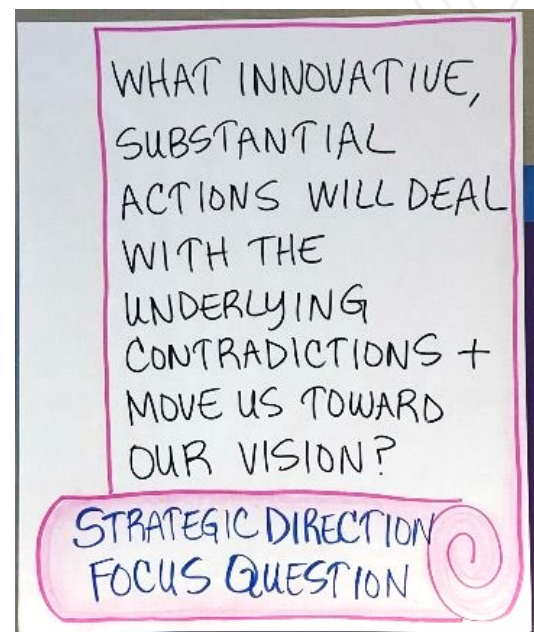 WHAT INNOVATIVE,
SUBSTANTIAL
ACTIONS WILL DEAL
WITH THE
UNDERLYING
CONTRADICTIONS +
MOVE US TOWARD
OUR VISION?
STRATEGIC DIRECTION
FOCUS QUESTION